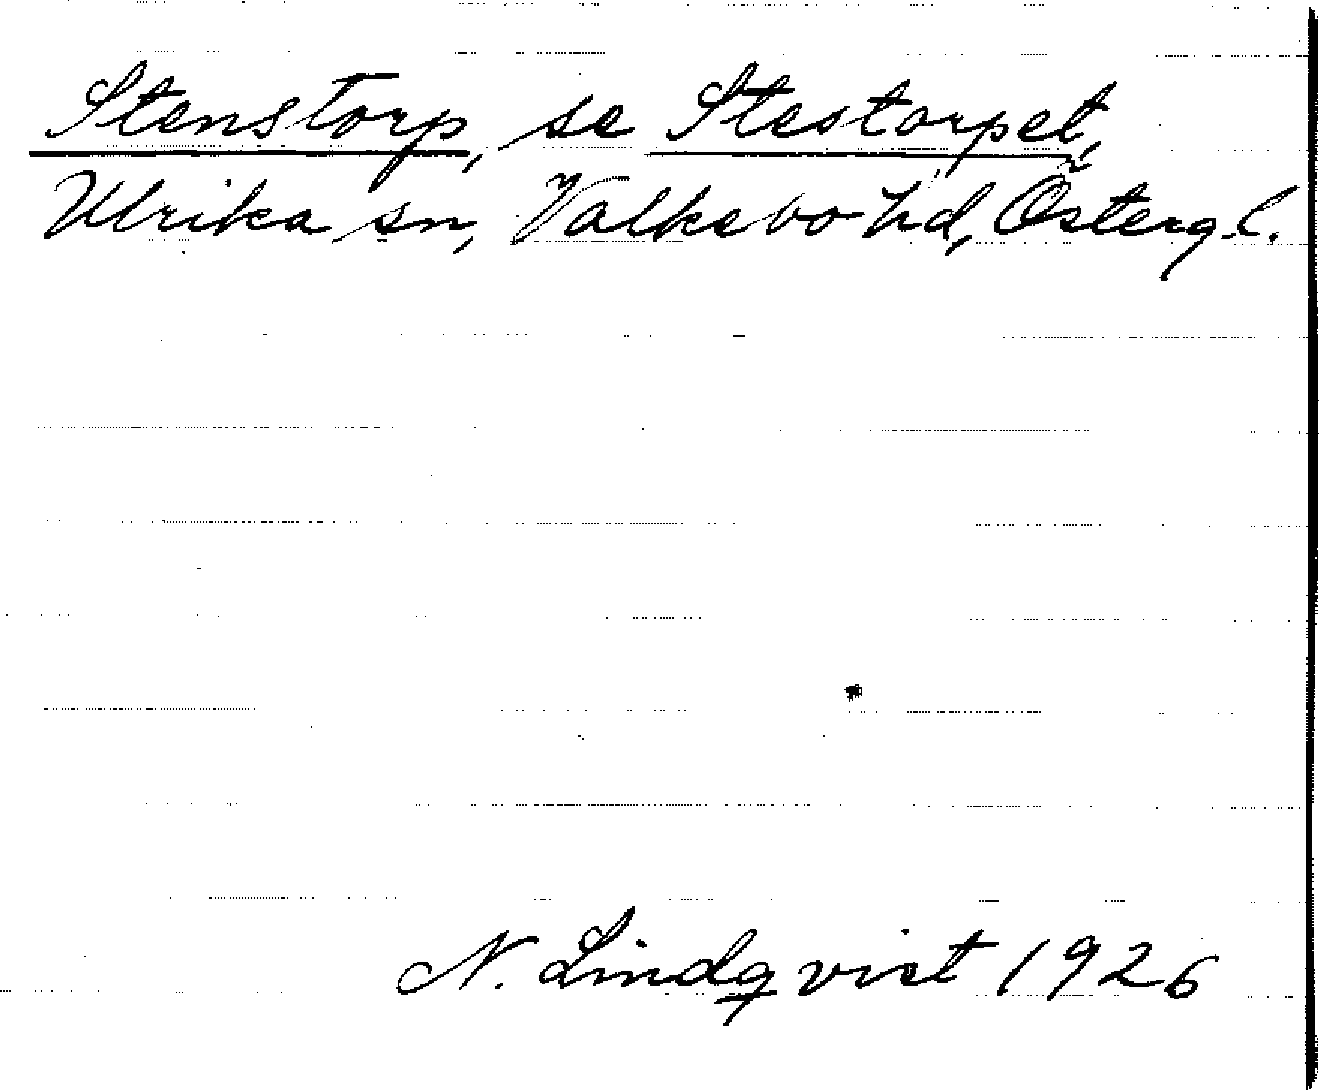 Stenstorp, se Stestorpet,
Ulrika sn, Valkebo hd, Österg. l.
N. Lindqvist 1926